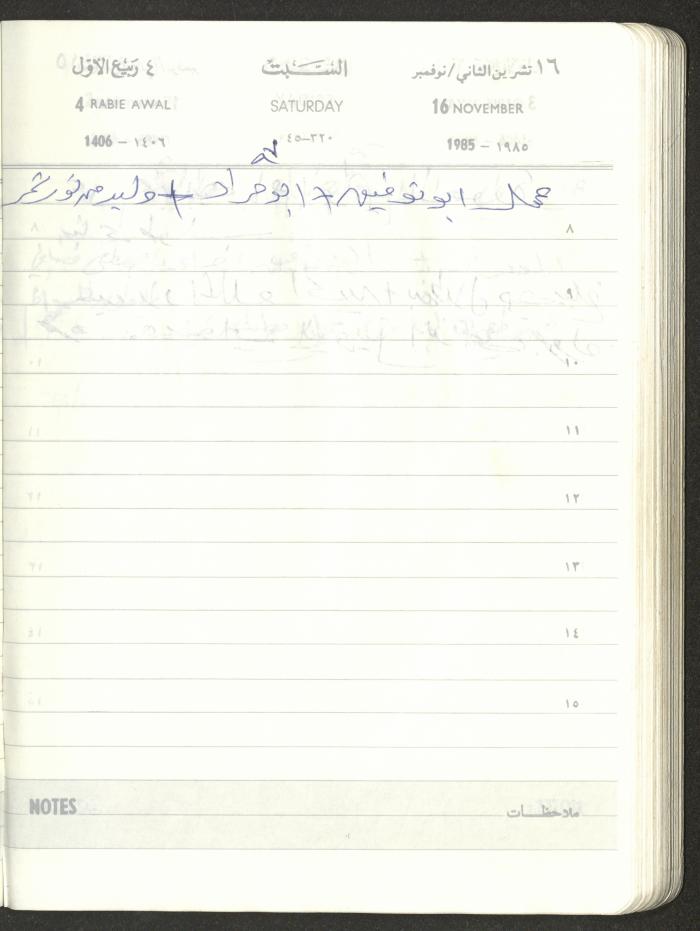 ١٦ تشرين الثاني/نوفمبر السبت ٤ ربيع الأول
16 NOVEMBER SATURDAY 4 RABIE AWAL
1985 - ١٩٨٥ ٣٢٠-٤٥ 1406 - ١٤٠٦
ابو توفيق + ابو مراد + وليد
٨
٩
١٠
١١
١٢
١٣
١٤
١٥
NOTES ملاحظات